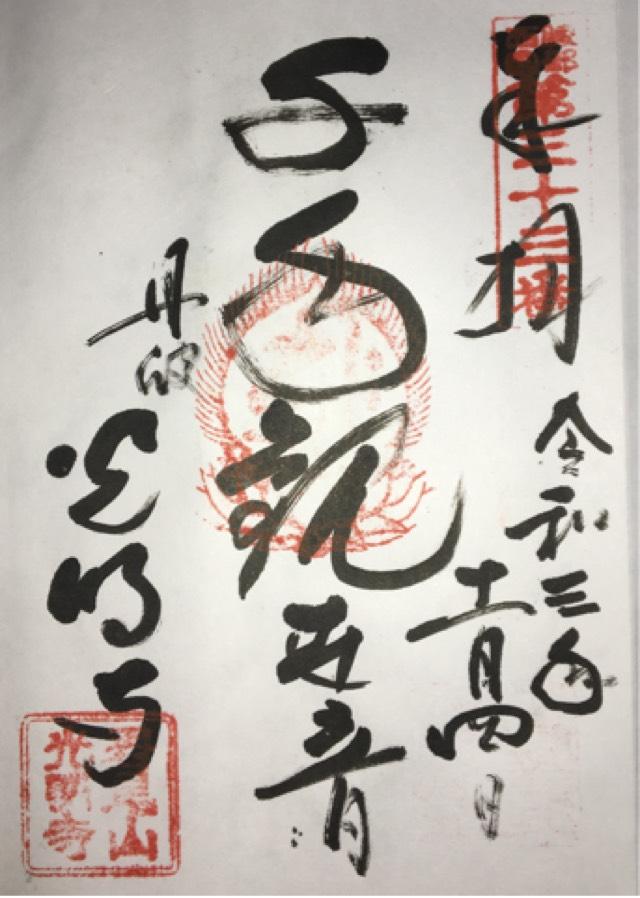 奉拝
第三十三番
令和三年
十一月四日
千手観世音
丹波
光明寺
君尾山
光明寺